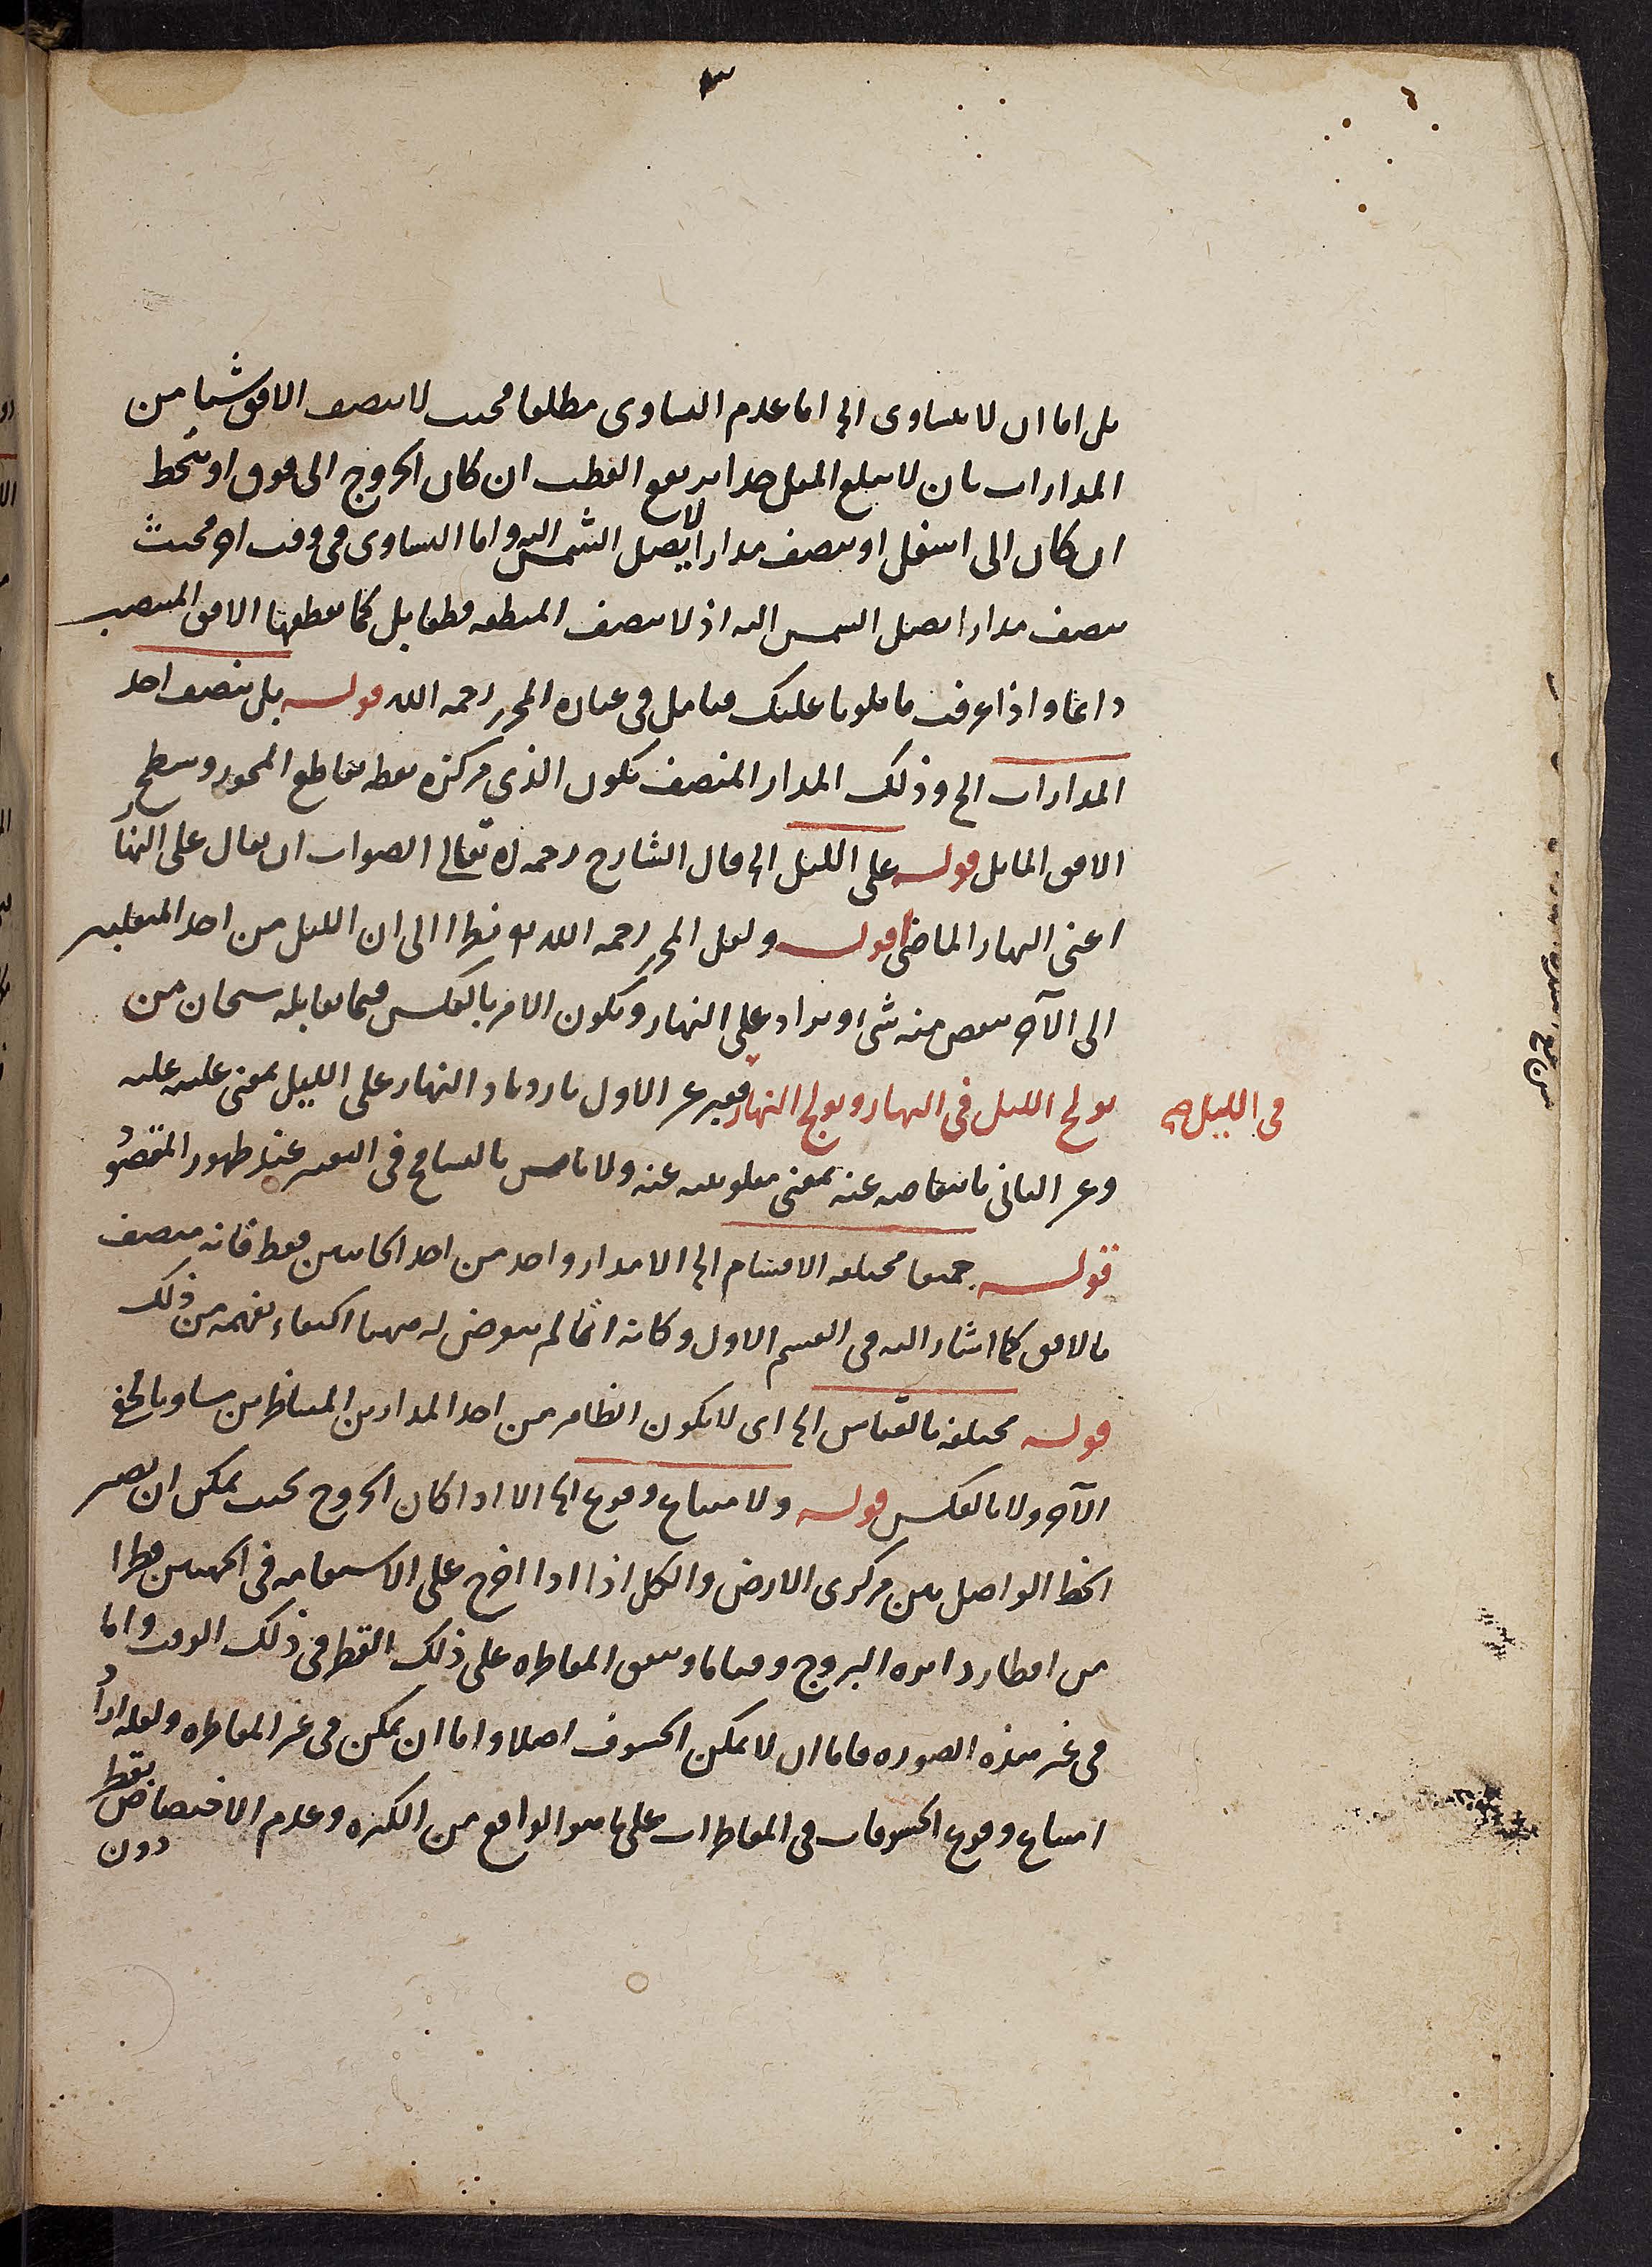 بل اما ان لا يتساوى الخ اما عدم التساوى مطلقا فحيث لا ينصف الافق شيئا من
المدارات بان لا يبلغ الميل حدا يرتفع القطب ان كان الخروج الى فوق او ينحط
ان كان الى اسفل او ينصف مدارا لا يصل الشمس اليه واما التساوى فى وقت اخر فحيث
ينصف مدارا يصل الشمس اليه اذ لا ينصف المنطقة قطعا بل كما يقطعها الافق المنتصب
دائما واذا عرفت ما تلونا عليك فتامل فى عبارة المحرر رحمه الله قوله بل ينصف احد
المدارات الخ وذلك المدار المنصف يكون الذى مركزه نقطة تقاطع المحور وسطح
الافق المايل قوله على الليل الخ قال الشارح رحمه الله تعالى الصواب ان يقال على النهار
اعنى النهار الماضى اقول ولعل المحرر رحمه الله نظرا الى ان الليل من احد المنقلبين
الى الآخر ينقص منه شئ ويزاد على النهار ويكون الامر بالعكس فيما يقابله سبحان من
يولج الليل فى النهار ويولج النهار فعبر عن الاول بازدياد النهار على الليل بمعنى غلبته عليه
فى الليل صح
وعن الثانى بانتقاصه عنه بمعنى مغلوبيته عنه ولا باس بالتسامح فى التعبير عند ظهور المقصود
قوله جميعا مختلفة الاقسام الخ الا مدار واحد من احد الجانبين فقط فانه منصف
بالافق كما اشار اليه فى القسم الاول وكانه انما لم يتعرض له ههنا اكتفاء بفهمه من ذلك
قوله مختلفة بالقياس الخ اى لا يكون الظاهر من احد المدارين المتناظرين مساويا لخفى
الآخر ولا بالعكس قوله ولا متناع وقوع الخ الا اذا كان الخروج بحيث يمكن ان يصير
الخط الواصل بين مركزى الارض والكل اذا اخرج على الاستقامة فى الجهتين قطرا
من اقطار دائرة البروج وقتا ما ويتفق المقاطرة على ذلك القطر فى ذلك الوقت واما
فى غير هذه الصورة فاما ان لا يمكن الخسوف اصلا واما ان يمكن فى غير المقاطرة ولعله اراد
امتناع وقوع الخسوفات فى المقاطرات على ما هو الواقع من الكثرة وعدم الاختصاص بقطر
دون